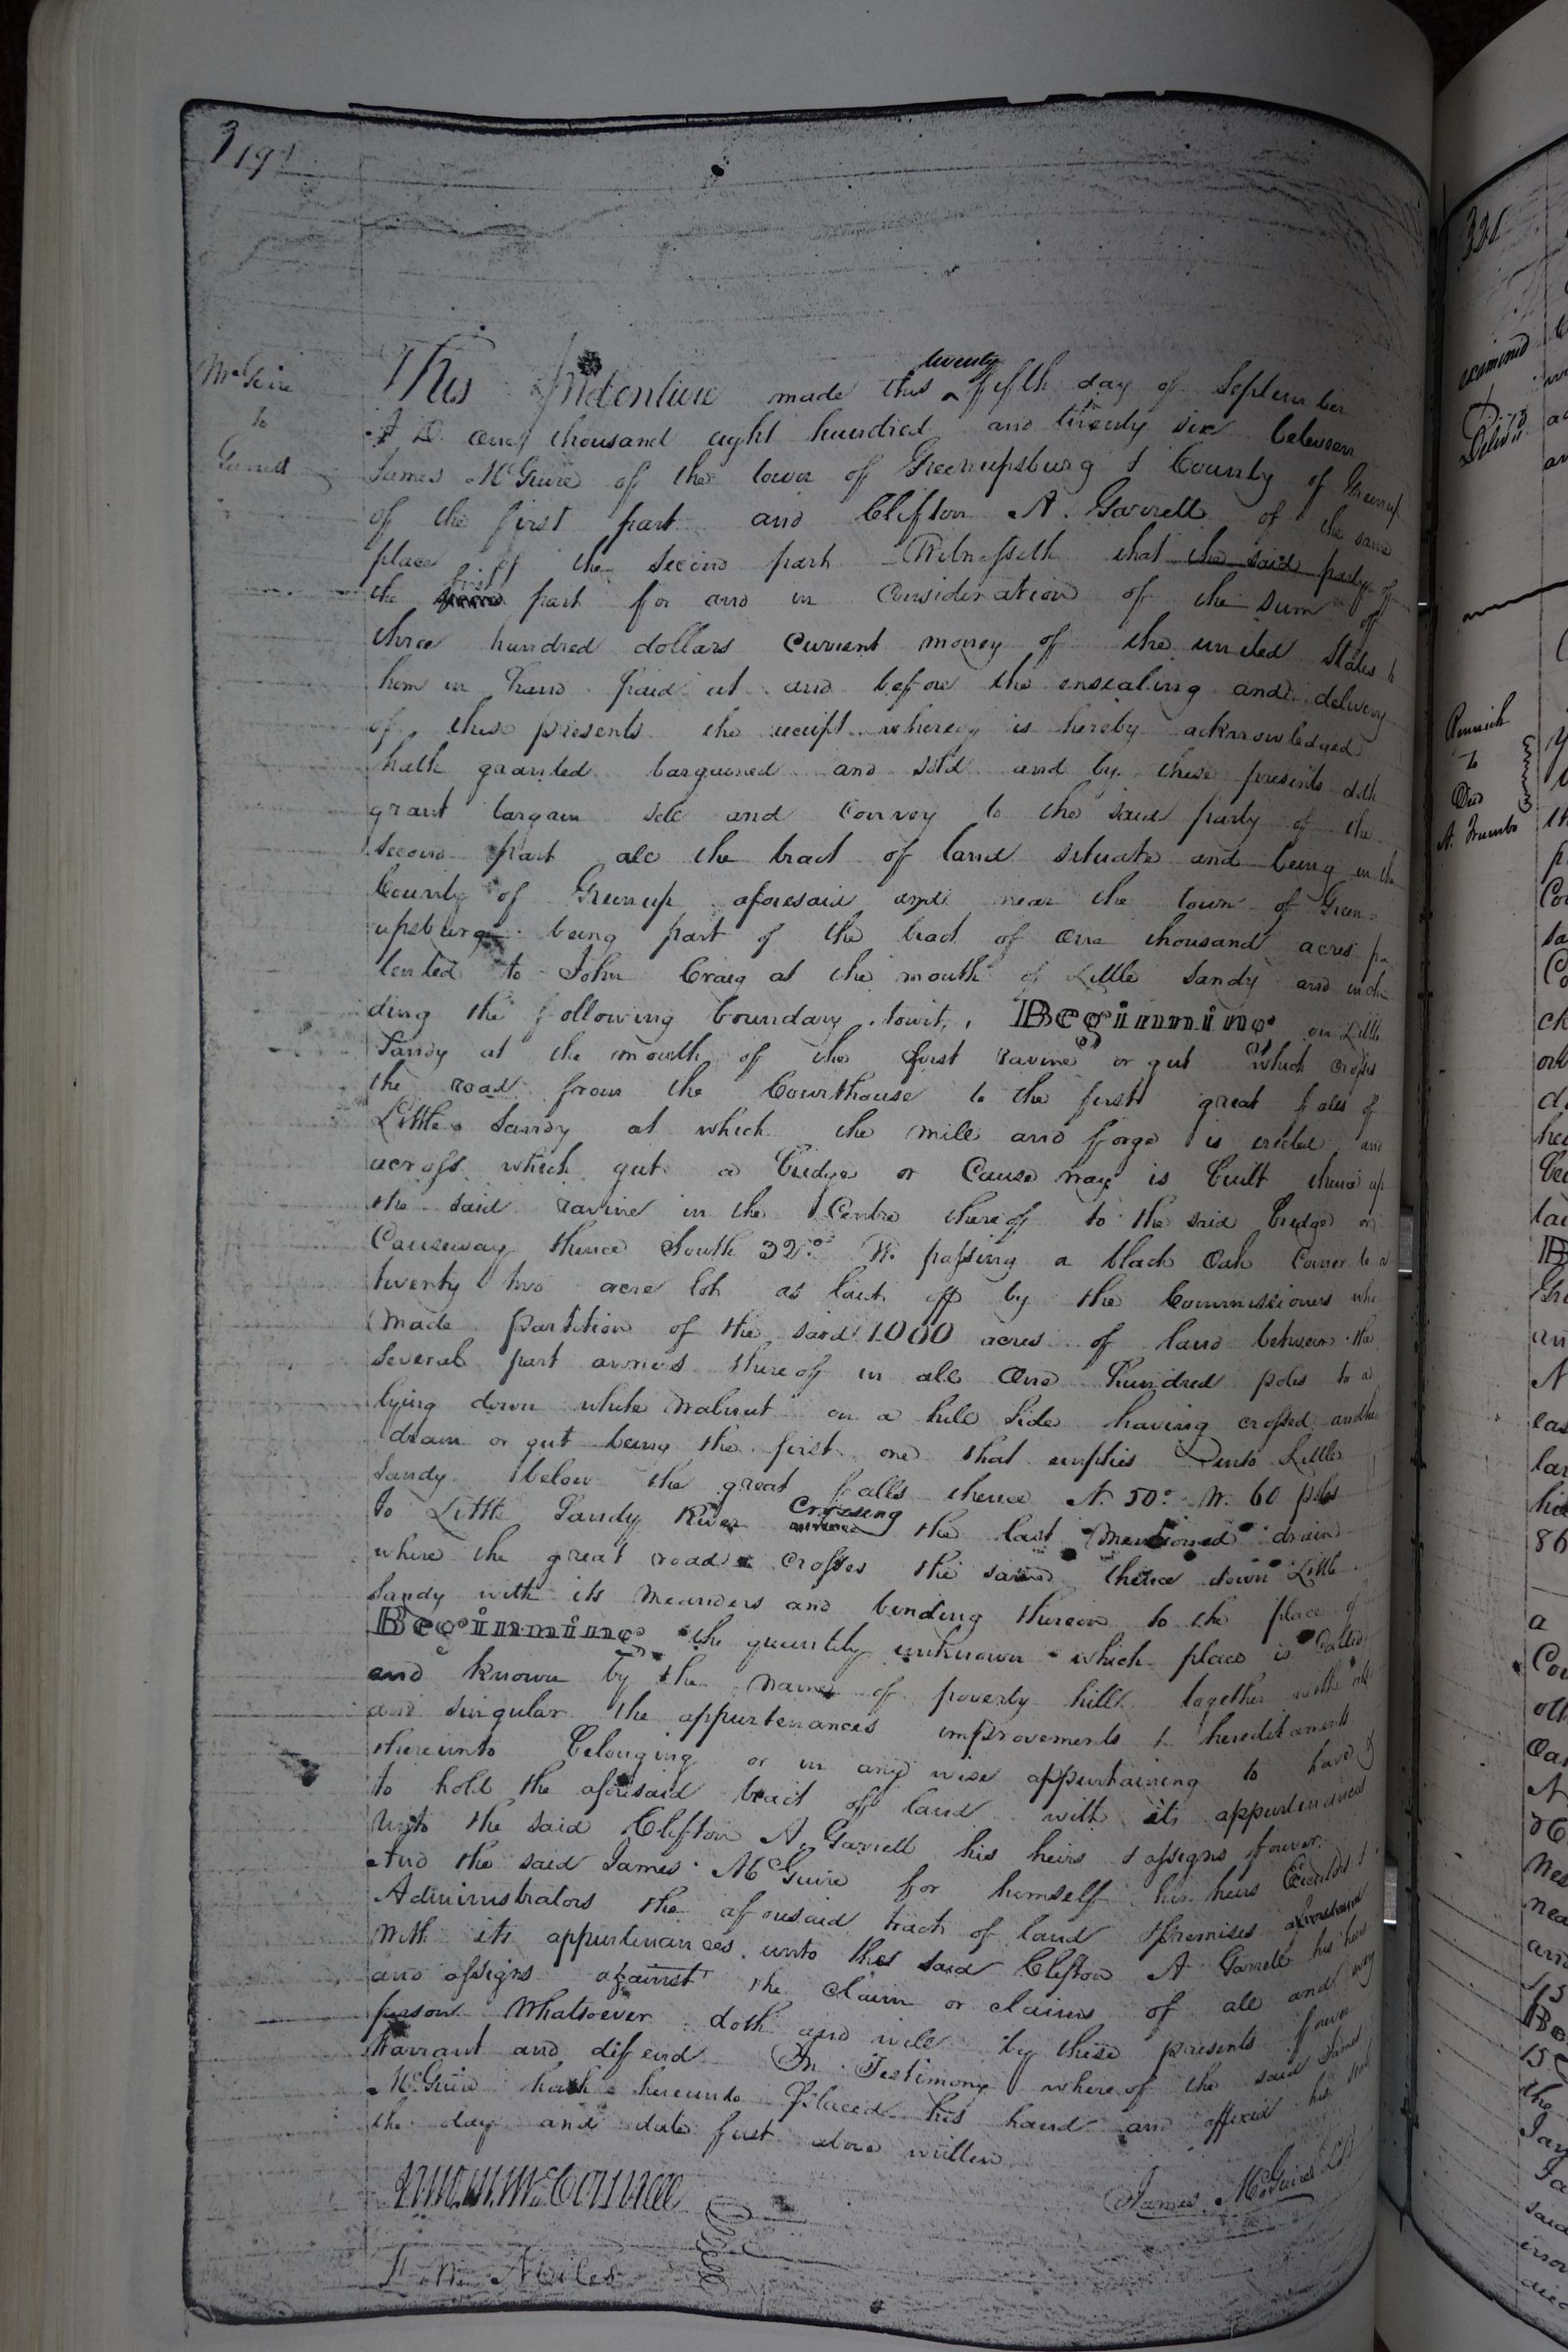 319
McGuire
to
Garrett
This Indenture made this twenty fifth day of September
A D. one thousand eight hundred and twenty six between
James McGuire of the town of Greenupsburg & County of Greenup
of the first part and Clifton A. Garrett of the same
place of the second part Witnesseth that the said party of
the first part for and in Consideration of the sum of
three hundred dollars Current money of the united States to
him in hand paid at and before the ensealing and delivery
of these presents the receipt whereof is hereby acknowledged
hath granted bargained and sold and by these presents doth
grant bargain sell and Convey to the said party of the
second part all the tract of land situate and being in the
County of Greenup aforesaid and near the town of Green=
upsburg being part of the tract of one thousand acres pa
tented to John Craig at the mouth of Little Sandy and inclu
ding the following boundary towit, Beginning on Little
Sandy at the mouth of the first ravine or gut which crosses
the road from the Courthouse to the first great falls of
Little Sandy at which the mill and forge is erected and
across which gut a bridge or Cause way is built thence up
the said ravine in the Centre thereof to the said bridge or
Causeway thence South 32° W. passing a black Oak Corner to a
twenty two acre lot as laid off by the Commissioners who
made partition of the said 1000 acres of land between the
several part owners thereof in all One hundred poles to a
lying down white Walnut on a hill side having crossed another
drain or gut being the first one that empties into Little
Sandy below the great falls thence N. 50° W. 60 poles
to Little Sandy River Crossing the last mentioned drain
where the great road crosses the same thence down Little
Sandy with its meanders and binding thereon to the place of
Beginning the quantity unknown which place is Called
and known by the name of poverty hill together with all
and singular the appurtenances improvements & hereditaments
thereunto belonging or in any wise appertaining to have &
to hold the aforesaid tract of land with its appurtenances
unto the said Clifton A. Garrett his heirs & assigns forever.
And the said James McGuire for himself his heirs Executors &
Administrators the aforesaid tract of land & premises aforesaid
with its appurtenances unto the said Clifton A Garrett his heirs
and assigns against the claim or claims of all and every
person Whatsoever doth and will by these presents forever
Warrant and defend In Testimony whereof the said James
McGuire hath hereunto placed his hand and affixed his seal
the day and date first above written
James McGuire
Miles
321
examined
&
Deliv'd
to
A. Trumbo